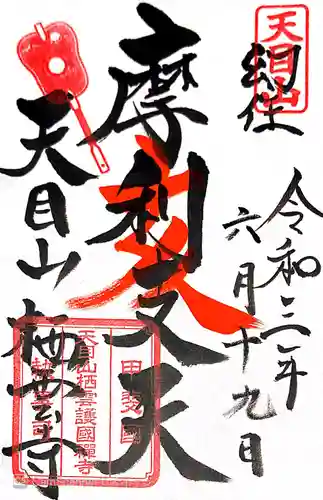 天目山
納経
令和三年
六月十九日
摩利支天
天目山栖雲寺
甲斐國
天目山栖雲護國禪寺